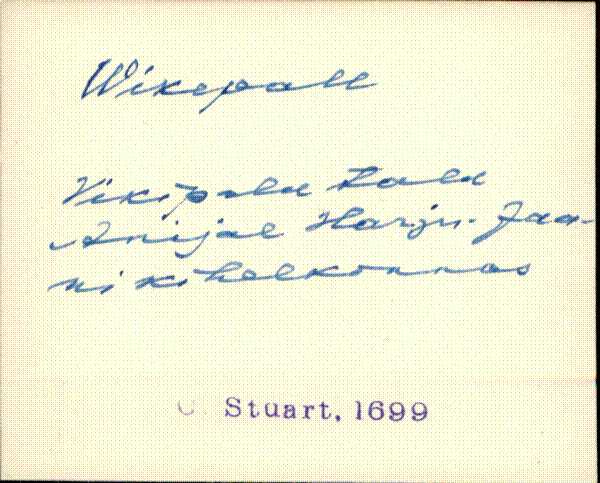 Wikepall
Vikipalu küla
Anijal Harju-Jaa-
ni kihelkonnas
C. Stuart, 1699